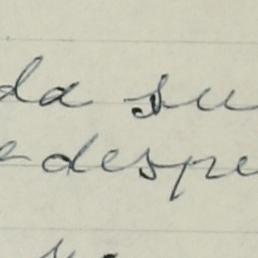 da su
e despe